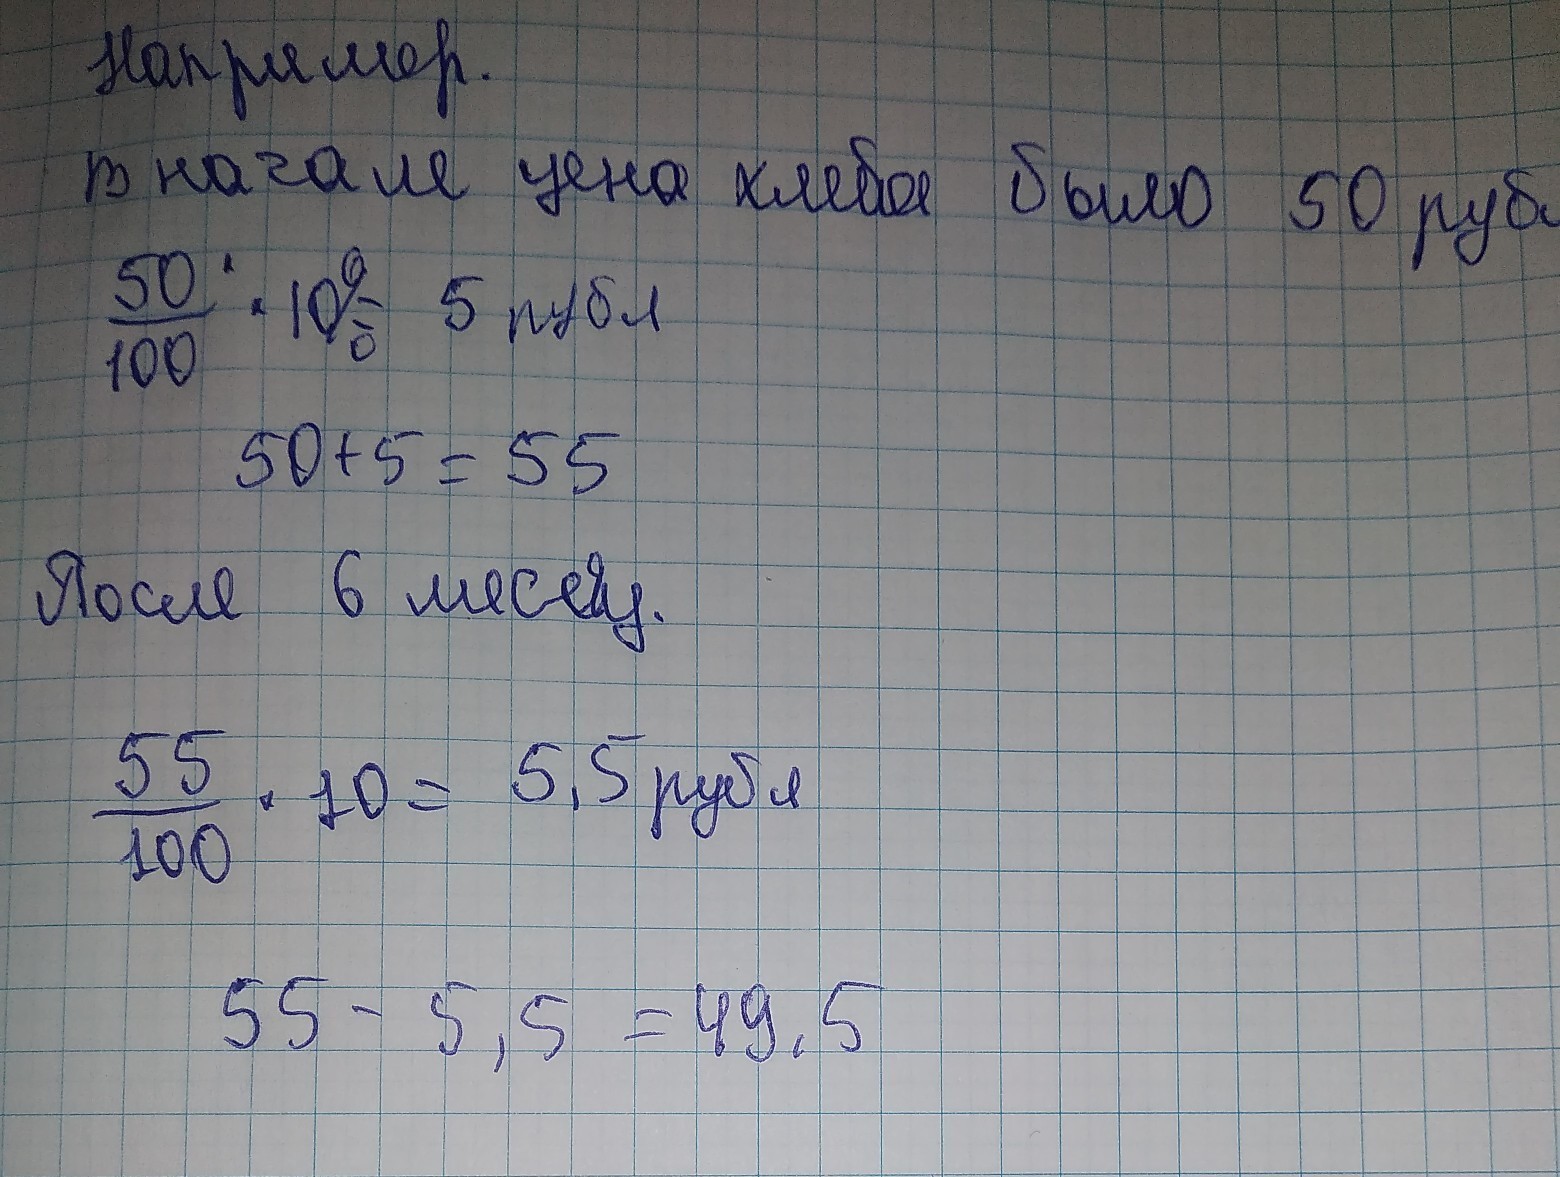 Например.
в начале цена хлеба было 50 рубл
50/100 · 10% 5 рубл
50+5=55
После 6 месяцу.
55/100 · 10 = 5,5 рубл
55 - 5,5 = 49.5